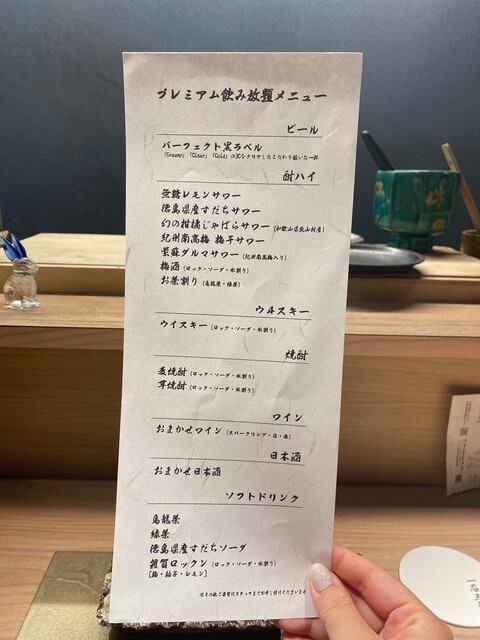 プレミアム飲み放題メニュー
ビール
パーフェクト黒ラベル
「Creamy」「Clear」「Cold」の3Cをクリアしたこだわり抜いた一杯
酎ハイ
無糖レモンサワー
徳島県産すだちサワー
幻の柑橘じゃばらサワー(和歌山県北山村産)
紀州南高梅 梅干サワー
紫蘇ダルマサワー(紀州南高梅入り)
梅酒(ロック・ソーダ・水割り)
お茶割り(烏龍茶・緑茶)
ウヰスキー
ウイスキー(ロック・ソーダ・水割り)
焼酎
麦焼酎(ロック・ソーダ・水割り)
芋焼酎(ロック・ソーダ・水割り)
ワイン
おまかせワイン(スパークリング・白・赤)
日本酒
おまかせ日本酒
ソフトドリンク
烏龍茶
緑茶
徳島県産すだちソーダ
雑賀ロックン(ロック・ソーダ・水割り)
[梅・柚子・レモン]
※その他ご要望はスタッフまでお申し付けくださいませ